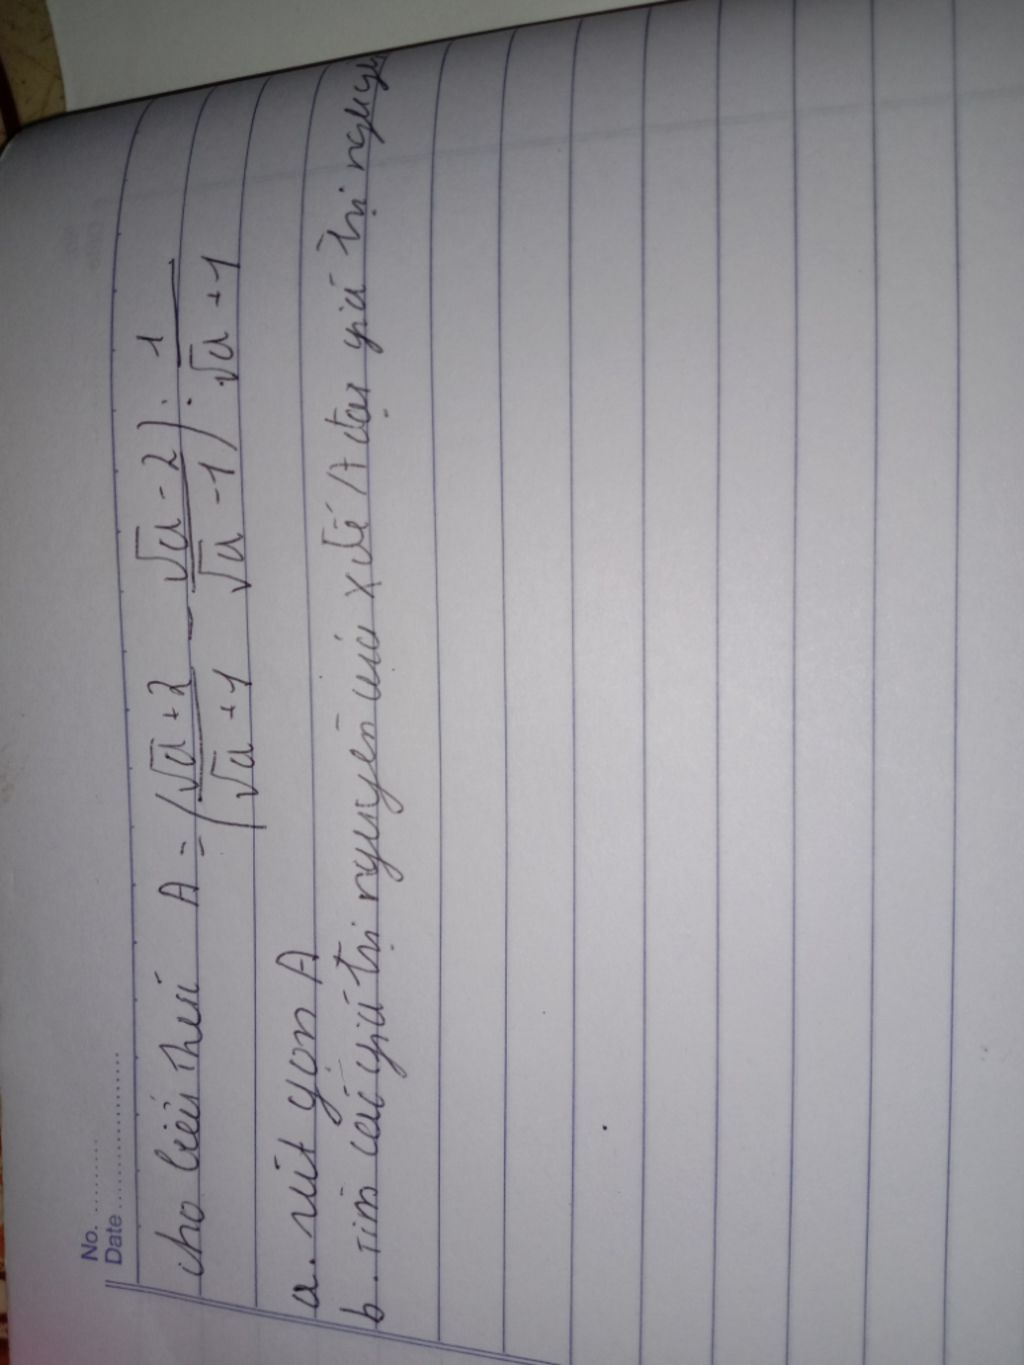 No. ..........
Date ......................
cho biểu thức A = (√a + 2 / √a + 1 - √a - 2 / √a - 1) : 1 / √a + 1
a. rút gọn A
b. Tìm các giá trị nguyên của x để A đạt giá trị nguyê